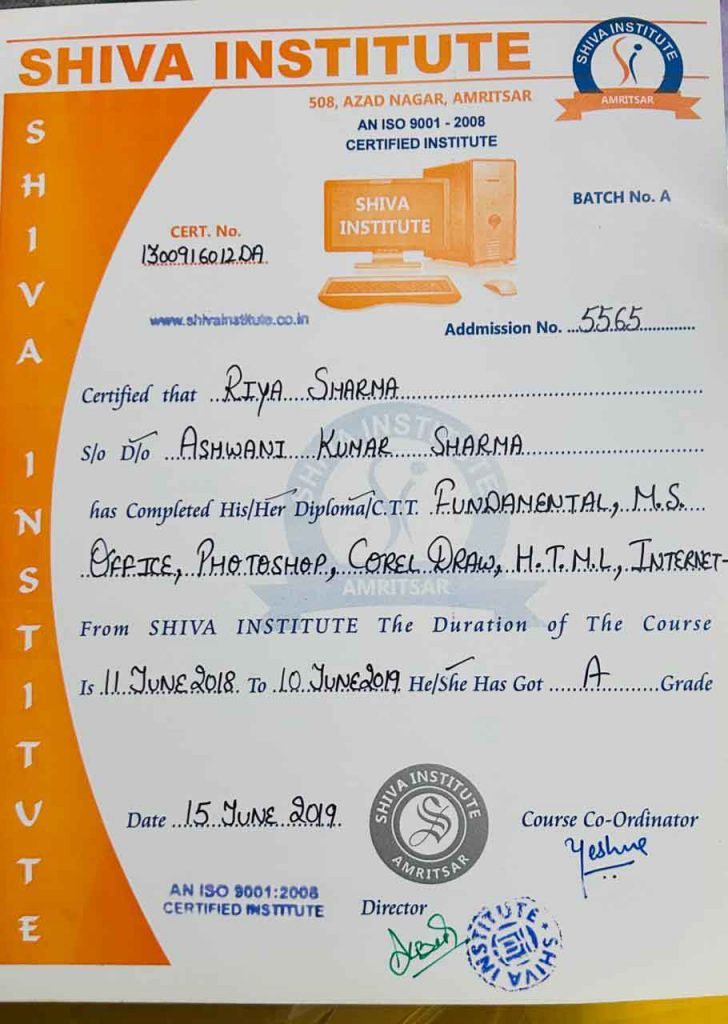 SHIVA INSTITUTE
SHIVA INSTITUTE
AMRITSAR
508, AZAD NAGAR, AMRITSAR
AN ISO 9001 - 2008
CERTIFIED INSTITUTE
SHIVA INSTITUTE
SHIVA
INSTITUTE
BATCH No. A
CERT. No.
1300916012DA
www.shivainstitute.co.in
Addmission No. ...5565............
Certified that ...RIYA SHARMA...
S/o D/o ...ASHWANI KUMAR SHARMA...
has Completed His/Her Diploma/C.T.T. FUNDAMENTAL, M.S.
OFFICE, PHOTOSHOP, COREL DRAW, H.T.M.L, INTERNET-
SHIVA INSTITUTE
AMRITSAR
From SHIVA INSTITUTE The Duration of The Course
Is 11 JUNE 2018. To 10 JUNE 2019 He/She Has Got ......A...........Grade
Date ...15 JUNE 2019.
SHIVA INSTITUTE
AMRITSAR
Course Co-Ordinator
Yeshna
AN ISO 9001:2008
CERTIFIED INSTITUTE
Director
SHIVA INSTITUTE